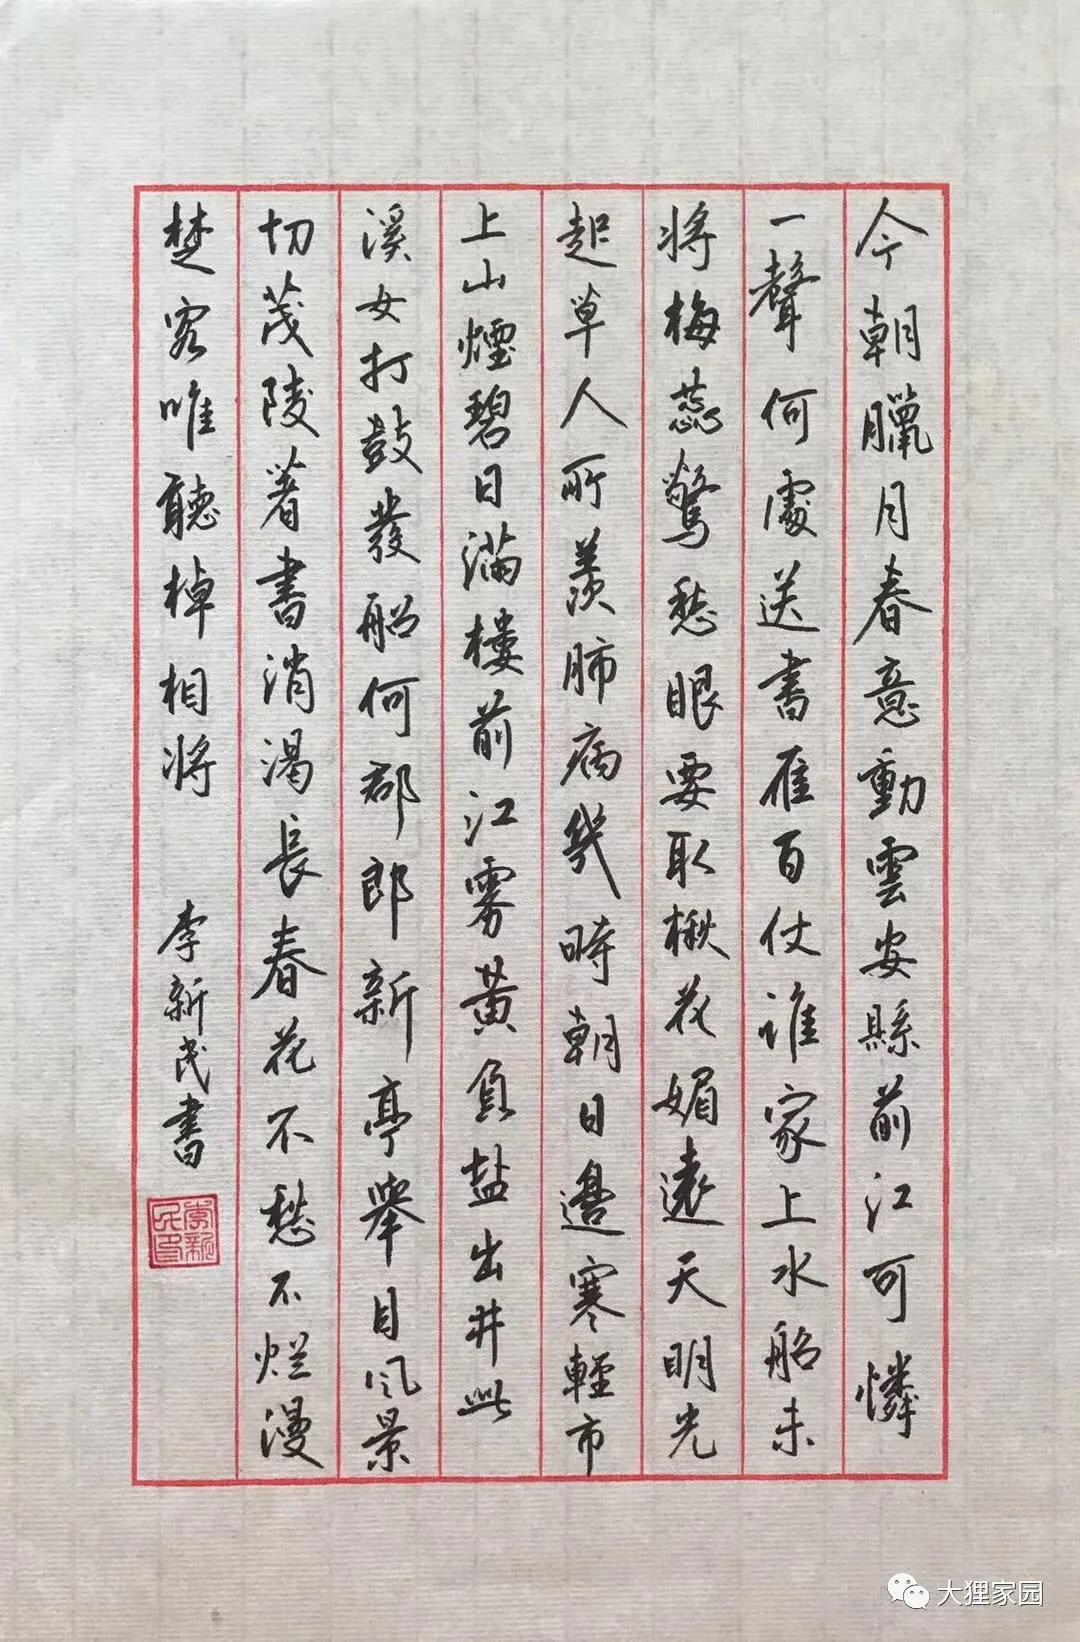 今朝臘月春意動雲安縣前江可憐
一聲何處送書雁百仗誰家上水船未
將梅蕊驚愁眼要取楸花媚遠天明光
起草人所羨肺病幾時朝日邊寒輕市
上山煙碧日滿樓前江雾黃負盐出井此
溪女打鼓發船何郡郎新亭舉目风景
切茂陵著書消渴長春花不愁不烂漫
楚客唯聽棹相將 李新民書
李新民印
大狸家园